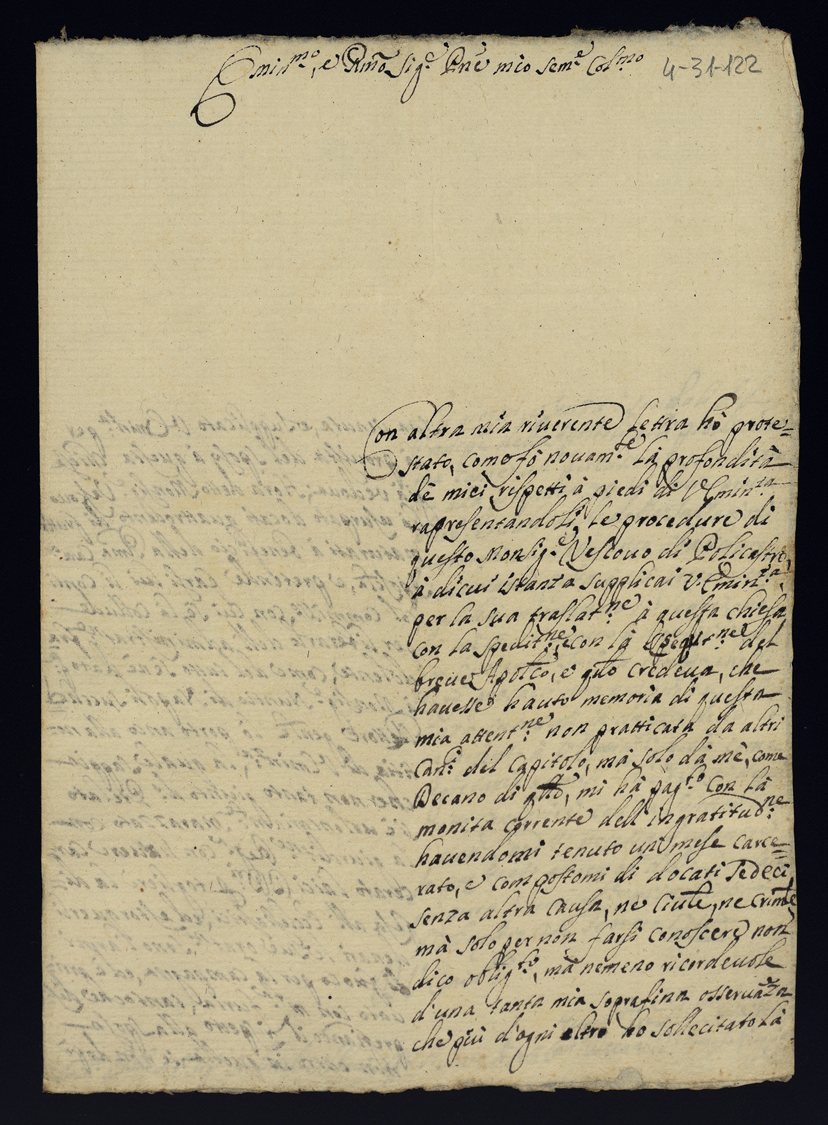 Emin.mo, e Rmo Sig.e Pne mio sem.e Col.mo 4-31-122
Con altra mia riverente Lettra hò prote=
stato, come fò novam.te la profondità
de miei rispetti à piedi di V. Emin.za
rapresentandoli le procedure di
questo Monsig.e Vescovo di Policastro,
à di cui istanza supplicai V. Emin.za
per la sua traslat.ne à questa chiesa
con la spedit.ne, e con la esegut.ne del
breve Apolco, e qto credeva, che
havesse havuto memoria di questa
mia attent.ne non pratticata da altri
Can.ci del Capitolo, mà solo da mè, come
Decano di qtto, mi hà pag.to con la
monita corrente dell'ingratitud.ne
havendomi tenuto un mese carce=
rato, e compostomi di docati sedeci
senza altra causa, ne Civle, ne Crimle
mà solo per non farsi conoscere non
dico oblig.to, mà nemeno ricordevole
d'una tanta mia soprafina osservaza
che più d'ogni altro ho sollecitato la